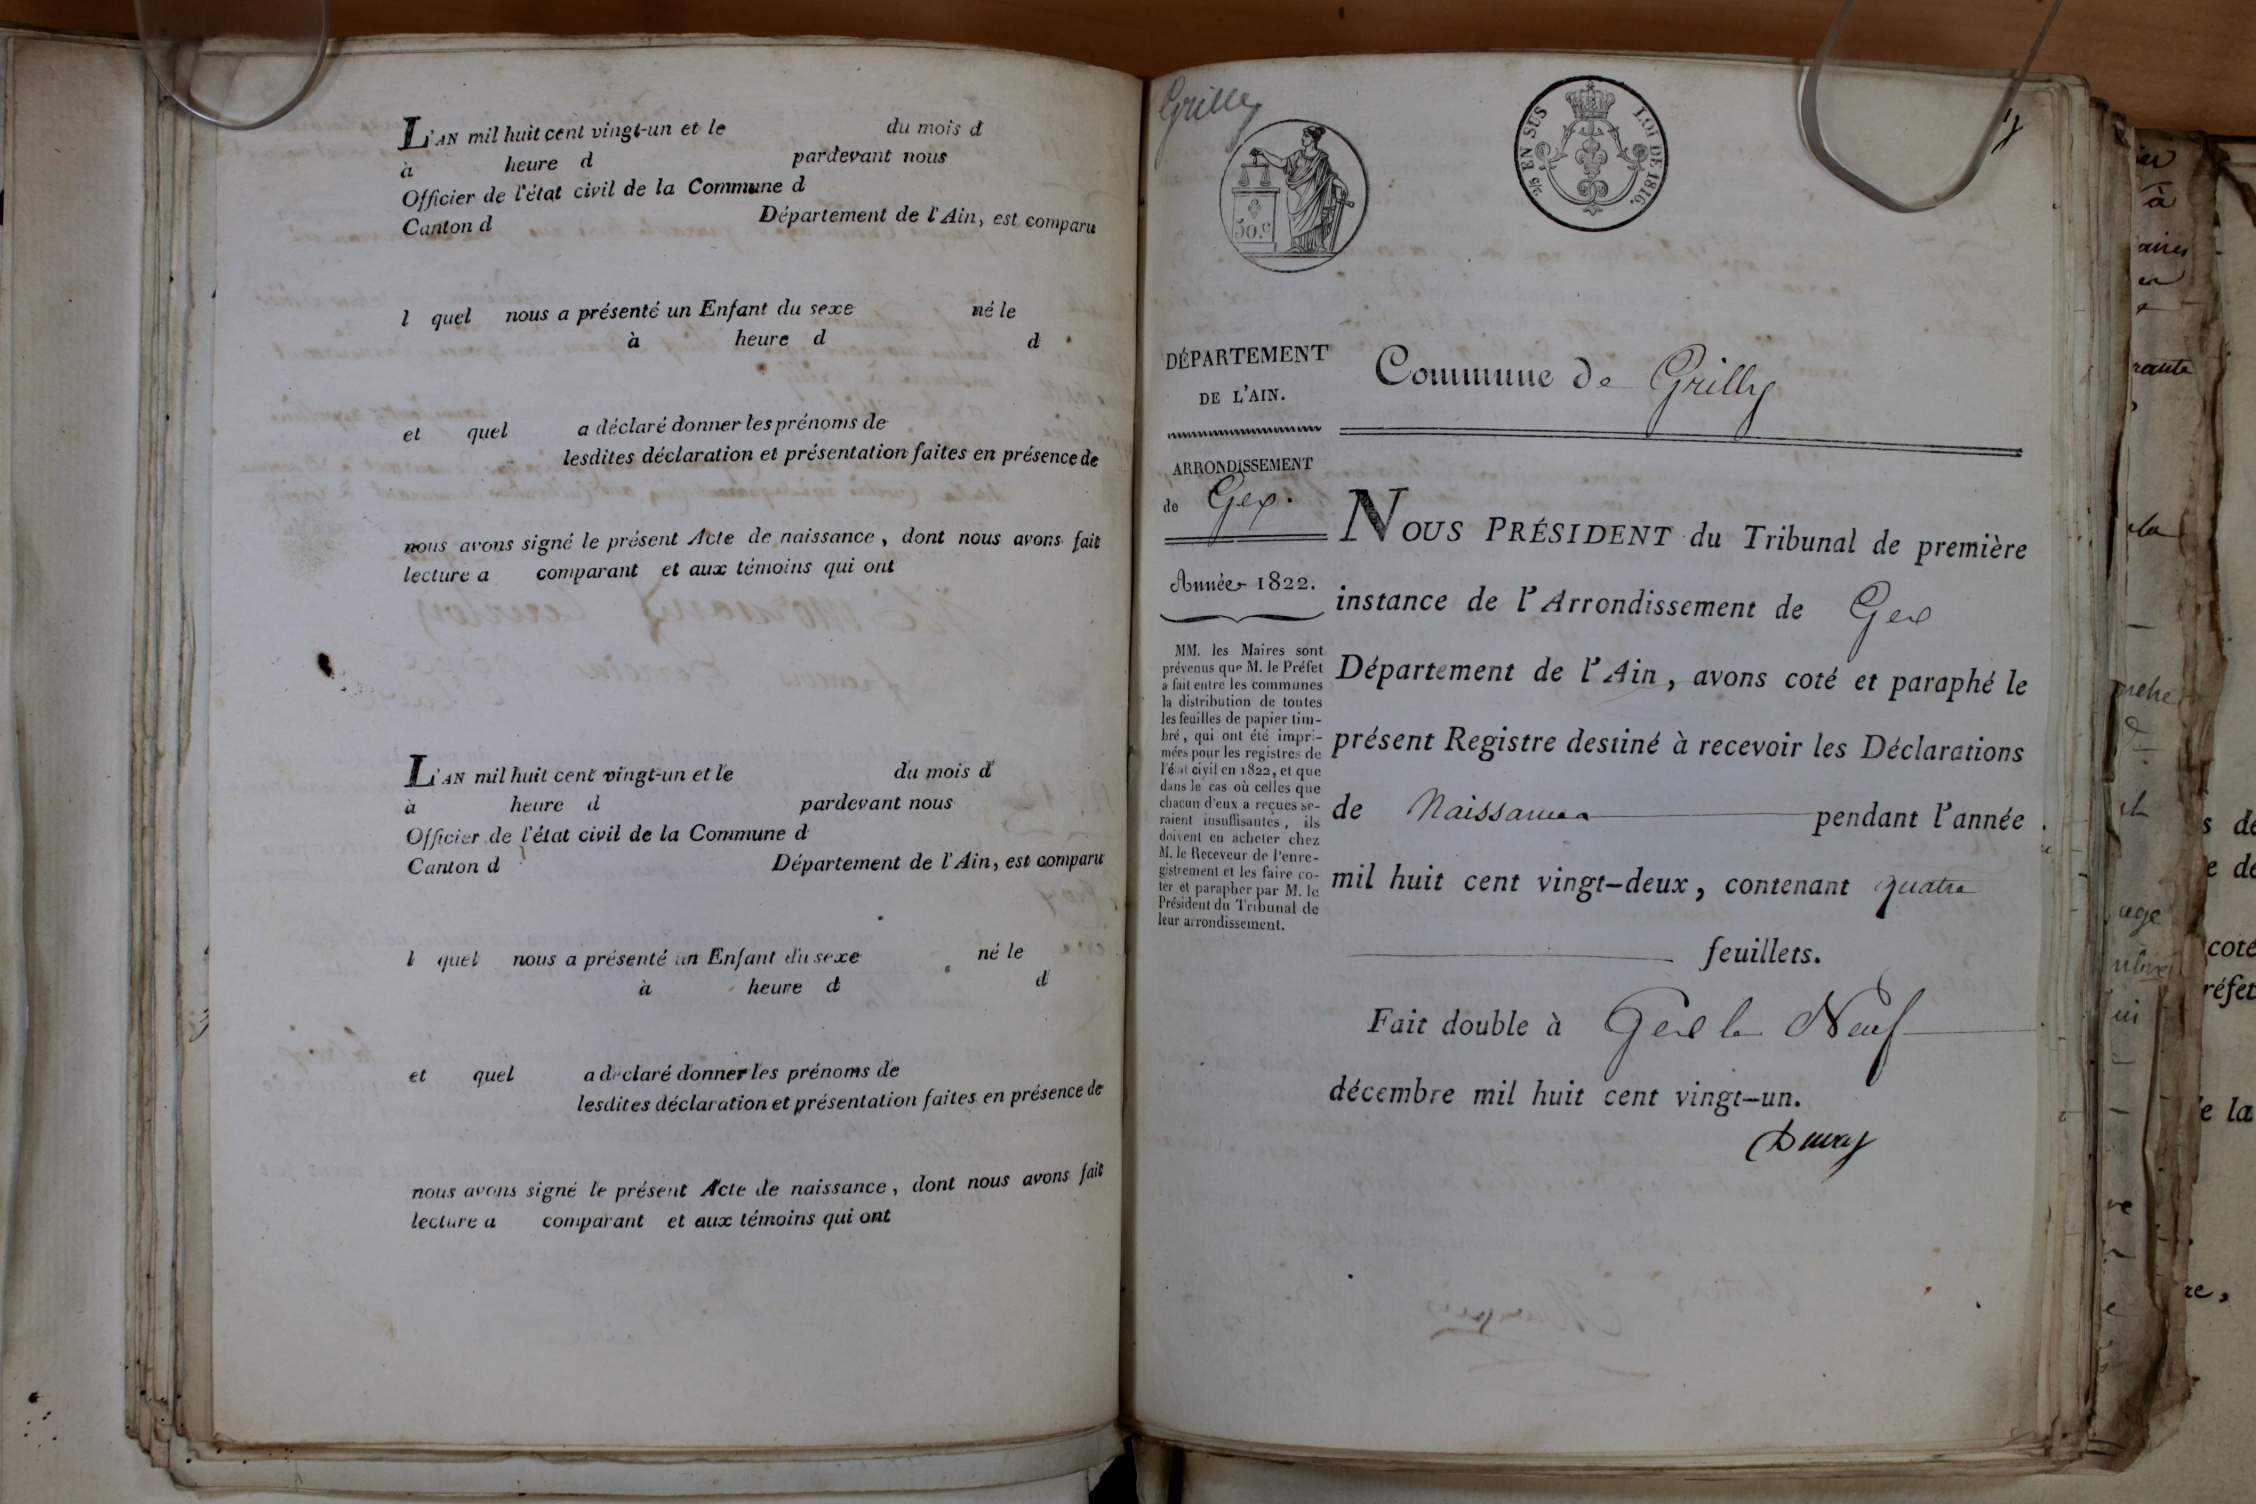 L'AN mil huit cent vingt-un et le du mois d
à heure d pardevant nous
Officier de l'état civil de la Commune d
Canton d Département de l'Ain, est comparu
l quel nous a présenté un Enfant du sexe né le
à heure d d
et quel a déclaré donner les prénoms de
lesdites déclaration et présentation faites en présence de
nous avons signé le présent Acte de naissance, dont nous avons fait
lecture a comparant et aux témoins qui ont
L'AN mil huit cent vingt-un et le du mois d
à heure d pardevant nous
Officier de l'état civil de la Commune d
Canton d Département de l'Ain, est comparu
l quel nous a présenté un Enfant du sexe né le
à heure d d
et quel a déclaré donner les prénoms de
lesdites déclaration et présentation faites en présence de
nous avons signé le présent Acte de naissance, dont nous avons fait
lecture a comparant et aux témoins qui ont
Grilly
50.c
EN SUS LOI DE 1816.
DÉPARTEMENT
DE L'AIN.
ARRONDISSEMENT
de Gex.
Année 1822.
MM. les Maires sont
prévenus que M. le Préfet
a fait entre les communes
la distribution de toutes
les feuilles de papier tim-
bré, qui ont été impri-
mées pour les registres de
l'état civil en 1822, et que
dans le cas où celles que
chacun d'eux a reçues se-
raient insuffisantes, ils
doivent en acheter chez
M. le Receveur de l'enre-
gistrement et les faire co-
ter et parapher par M. le
Président du Tribunal de
leur arrondissement.
Commune de Grilly
NOUS PRÉSIDENT du Tribunal de première
instance de l'Arrondissement de Gex
Département de l'Ain, avons coté et paraphé le
présent Registre destiné à recevoir les Déclarations
de Naissances pendant l'année
mil huit cent vingt-deux, contenant quatre
feuillets.
Fait double à Gex le Neuf
décembre mil huit cent vingt-un.